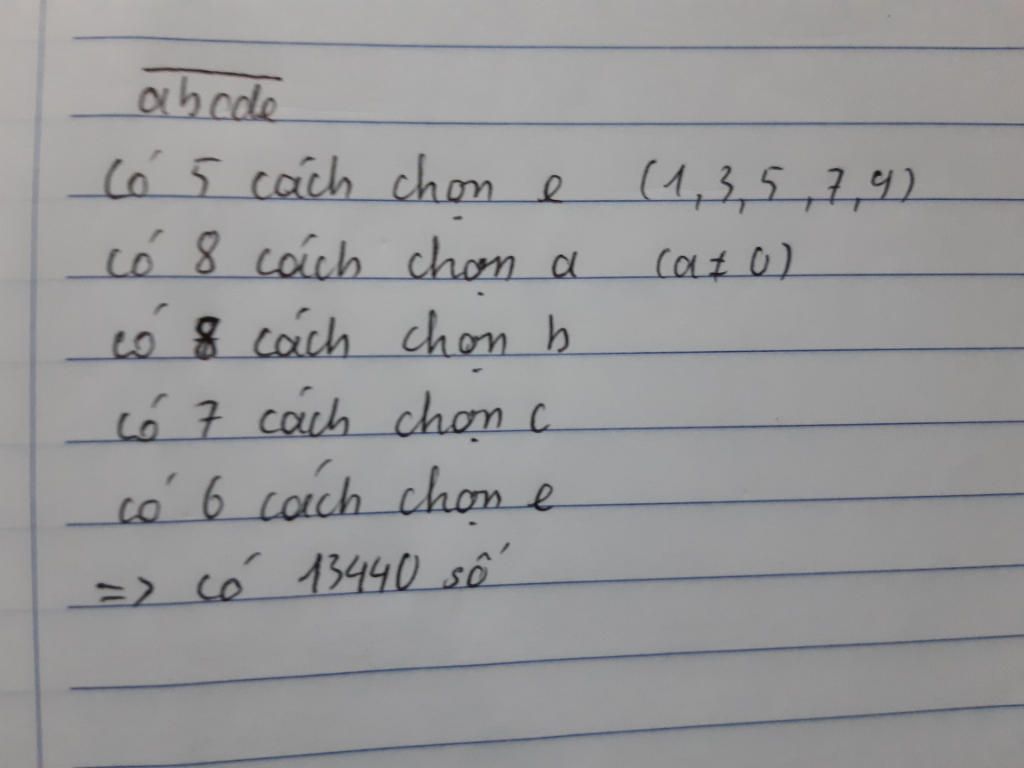 abcde
Có 5 cách chọn e (1,3,5,7,9)
có 8 cách chọn a (a≠0)
có 8 cách chọn b
có 7 cách chọn c
có 6 cách chọn e
=> có 13440 số